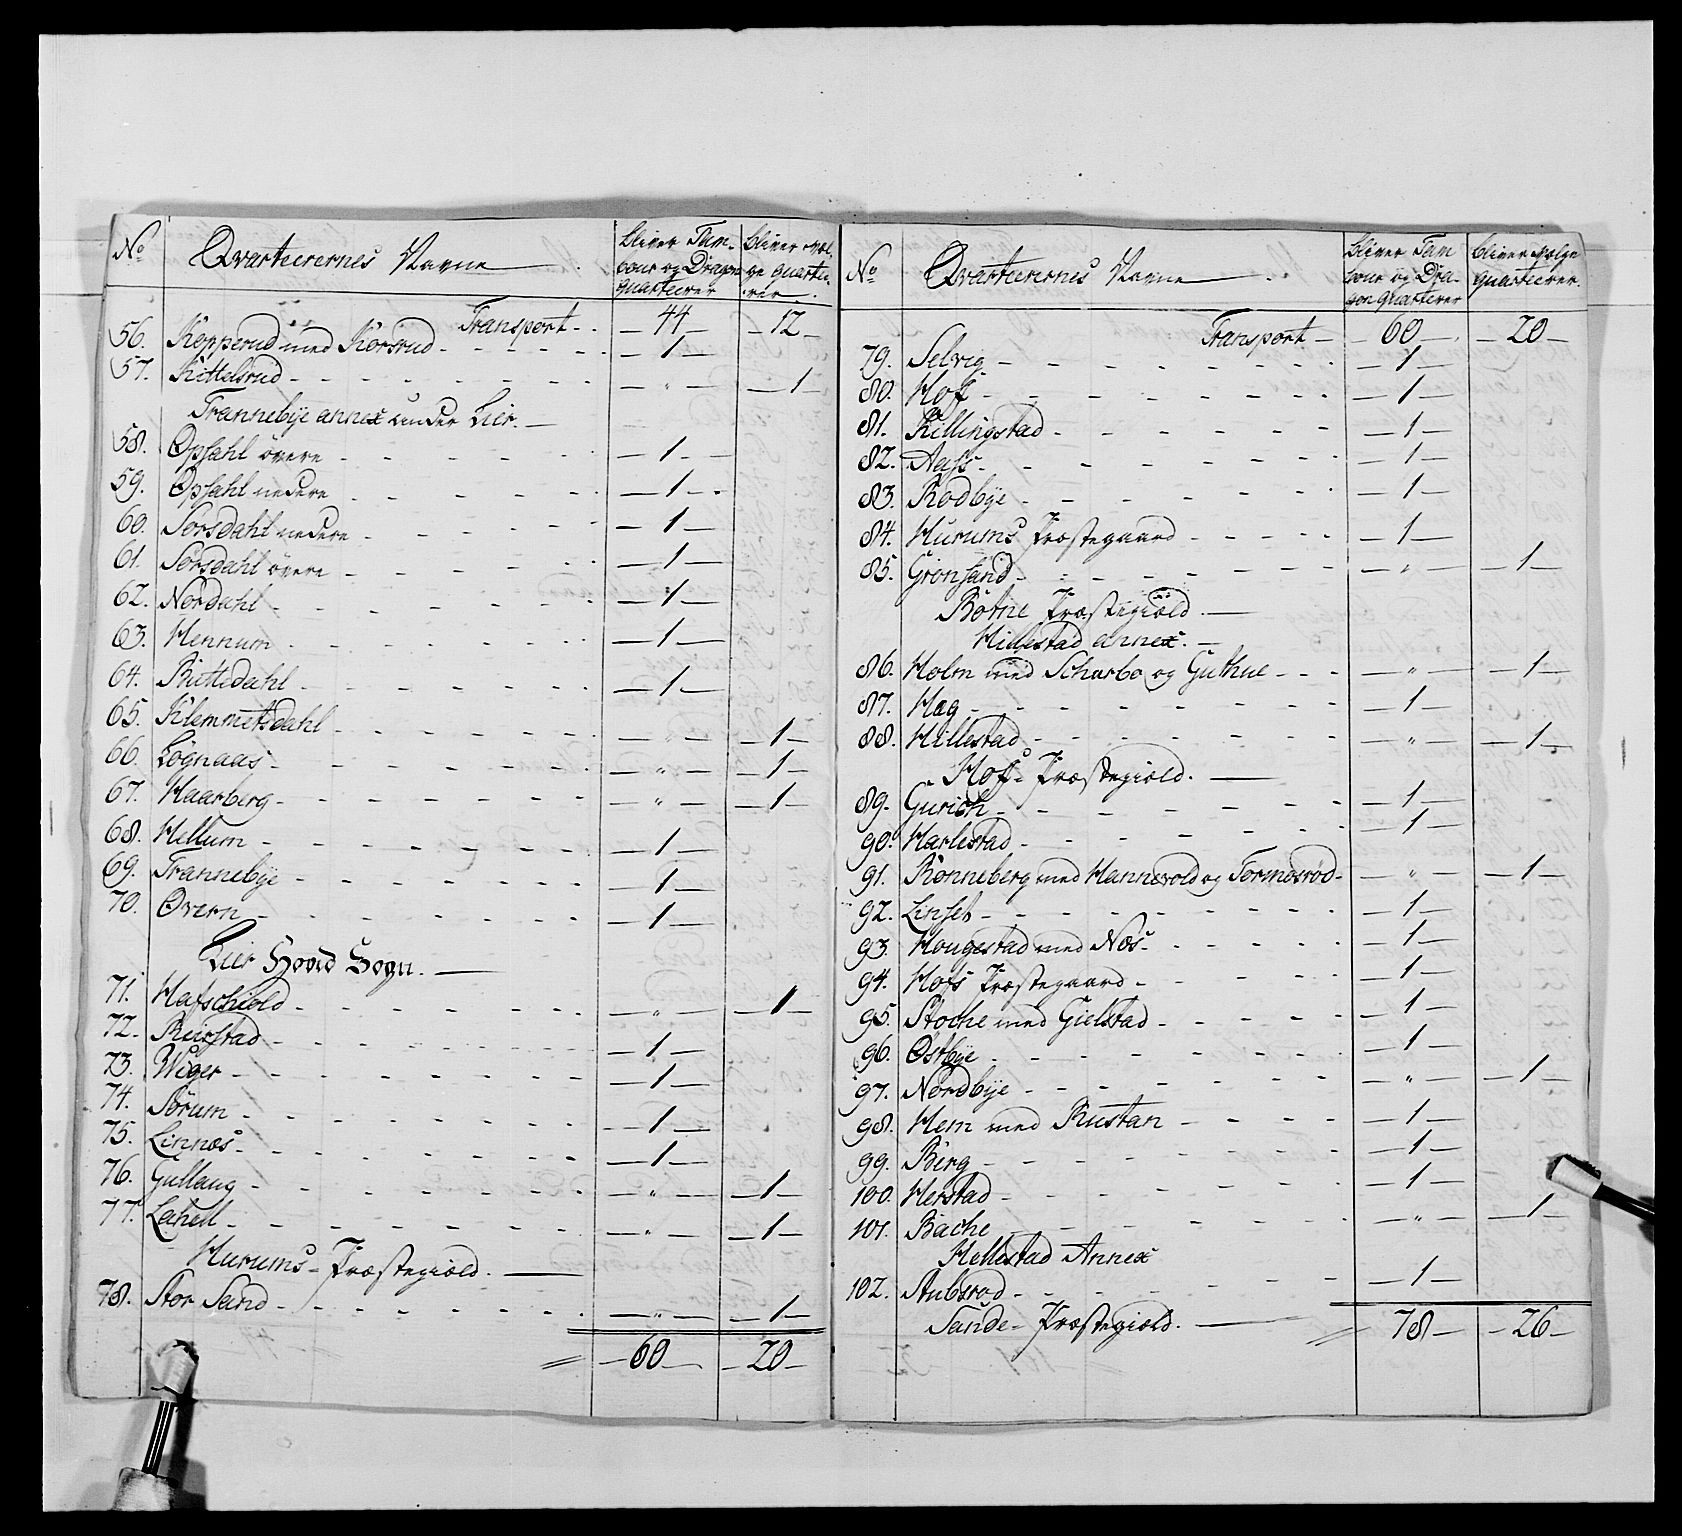 No Qvarteerernes Navne bliver Tam- bliver væl-
bour og Dragon ge quartee-
quarteerer rer
Transport - 44 - - 12 -
56. Kopperud med Korsrud - 1 -
57. Kittelsrud - " - - 1
Trannebye annex under Lier.
58. Opsahl övere - 1 -
59. Opsahl nedere - 1 -
60. Sorsdahl nedere - 1 -
61. Sorsdahl övere - 1 -
62. Nordahl - 1 -
63. Hennum - 1 -
64. Buttedahl - 1 -
65. Klemmetsdahl - " - - 1 -
66. Løgnaas - " - - 1 -
67. Haarberg - " - - 1 -
68. Hellum - 1 -
69. Trannebye - 1 -
70. Overn - 1 -
Lier Hoved Sogn.
71. Hafschiold - " - - 1 -
72. Reirstad - 1 -
73. Wiger - 1 -
74. Sørum - 1 -
75. Linnæs - 1 -
76. Gullaug - " - - 1 -
77. Lahell - " - - 1 -
Hurums Præstegiæld.
78. Stor Sand - " - - 1 -
= - 60 - - 20 -
No Qvarteerernes Navne bliver Tam bliver vælge
bour og Dra- quarteerer.
gon quarterer
Transport - 60 - - 20 -
79. Selvig - 1 -
80. Hof - 1 -
81. Killingstad - 1 -
82. Aass - 1 -
83. Rodbye - 1 -
84. Hurums Præstegaard - 1 -
85. Gronsand - " - - 1 -
Botne Præstegiæld.
Hillestad annex.
86. Holm med Scharbo og Guthue - " - - 1 -
87. Hæg - 1 -
88. Hillestad - " - - 1 -
Hofs Præstegiæld.
89. Gurich - 1 -
90. Harlestad - 1 -
91. Rønneberg med Hannevold og Tormosrød - " - - 1 -
92. Linset - 1 -
93. Hougestad med Næs - 1 -
94. Hofs Præstegaard - 1 -
95. Stoche med Gielstad - 1 -
96. Østbye - 1 -
97. Nordbye - " - - 1 -
98. Hem med Rustan - 1 -
99. Berg - 1 -
100. Herstad - 1 -
101. Bache - " - - 1 -
Hellestad Annex
102. Stubsrod - 1 -
Sande Præstegiæld.
= 78 - - 26 -